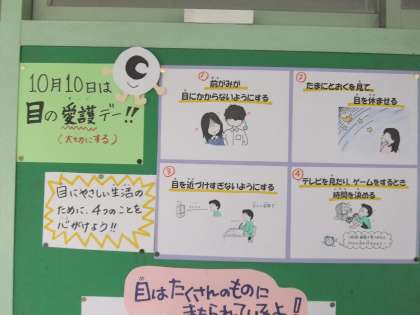 10月10日は
目の愛護デー!!
(大切にする)
目にやさしい生活の
ために、4つのことを
心がけよう!!
①
前がみが
目にかからないようにする
②
たまにとおくを見て
目を休ませる
③
目を近づけすぎないようにする
④
テレビを見たり、ゲームをするとき
時間を決める
目はたくさんのものに
まもられているよ!